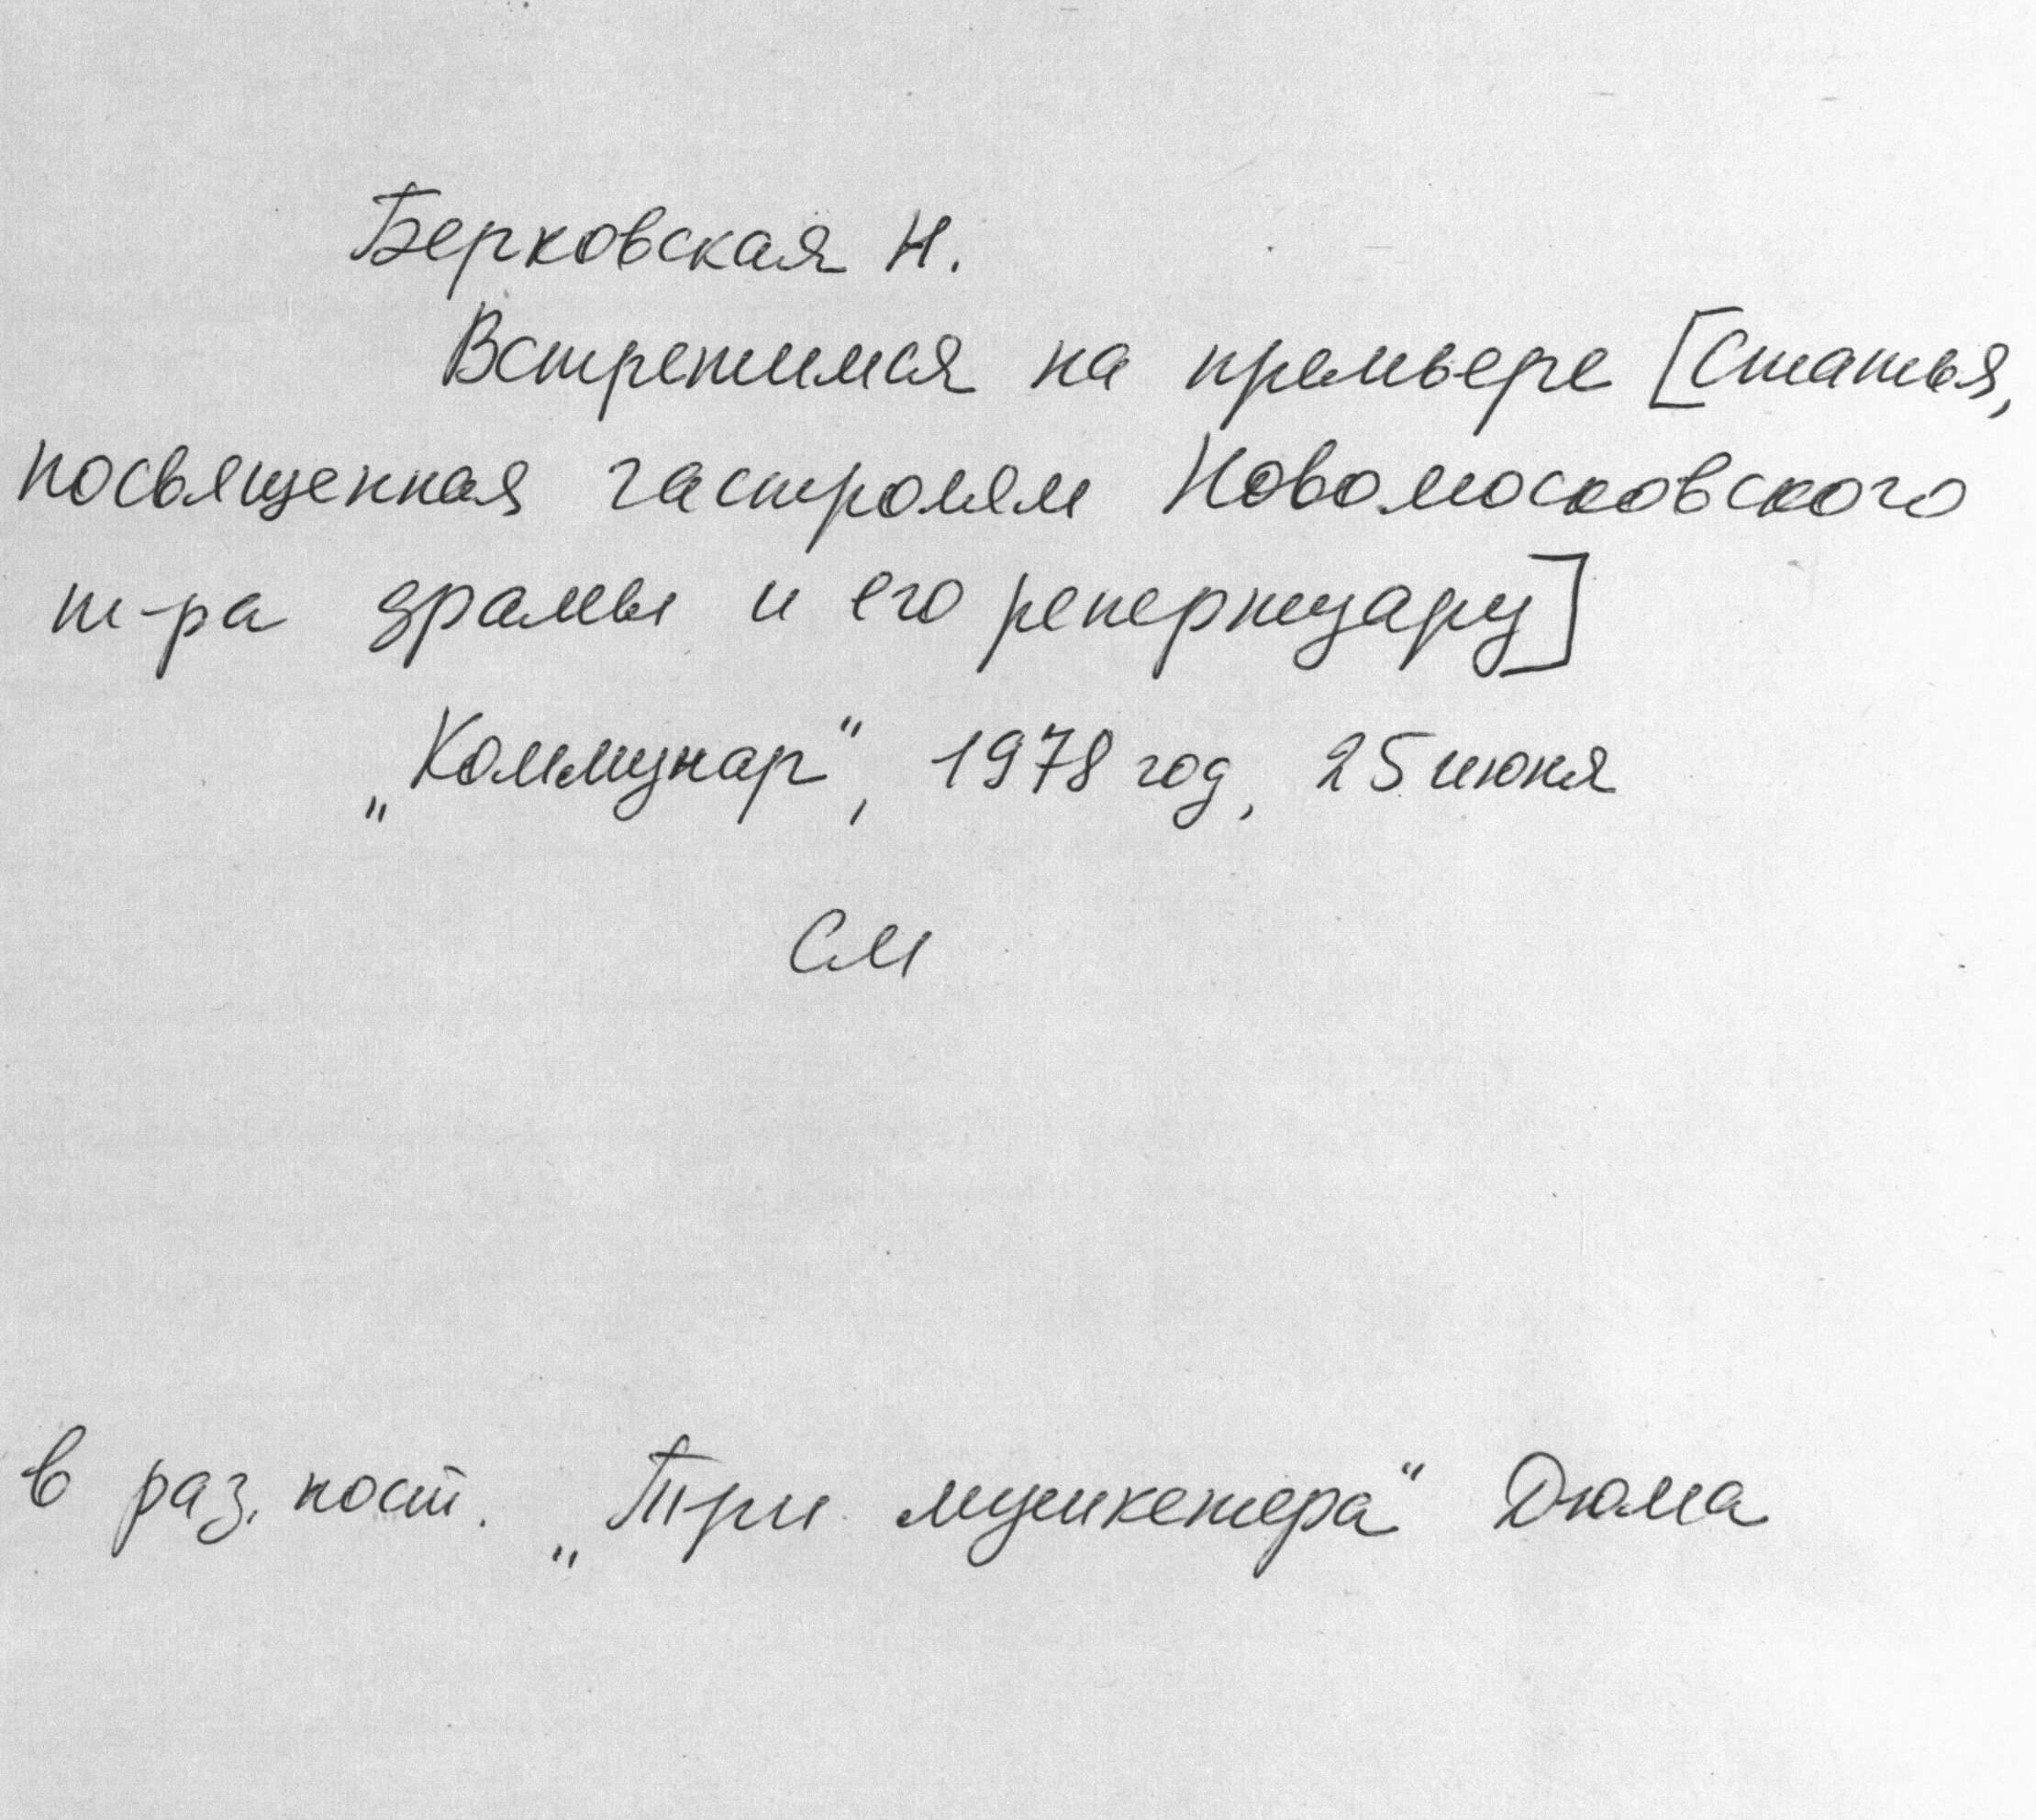 Берковская Н.
Встретимся на премьере [Статья,
посвященная гастролям Новомосковского
т-ра драмы и его репертуару]
„Коммунар“, 1978 год, 25 июня
См
в раз. пост. „Три мушкетера“ Дюма